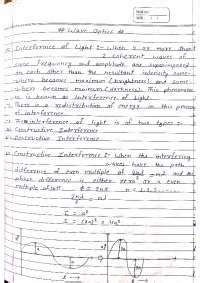 ## Wave Optics ##
Interference of Light :- When 2 or more than
2 coherent waves of
same frequency and amplitude are superimposed
on each other than the resultant intensity some-
where becomes maximum (brightness) and some-
where becomes minimum (darkness). This phenomena
is known as Interference of Light.
There is a redistribution of energy in this process
of interference.
Interference of light is of two types :-
Constructive Interference
Destructive Interference
Constructive Interference :- When the interfering
waves have the path
difference of even multiple of and the
phase difference is either zero or a even
multiple of